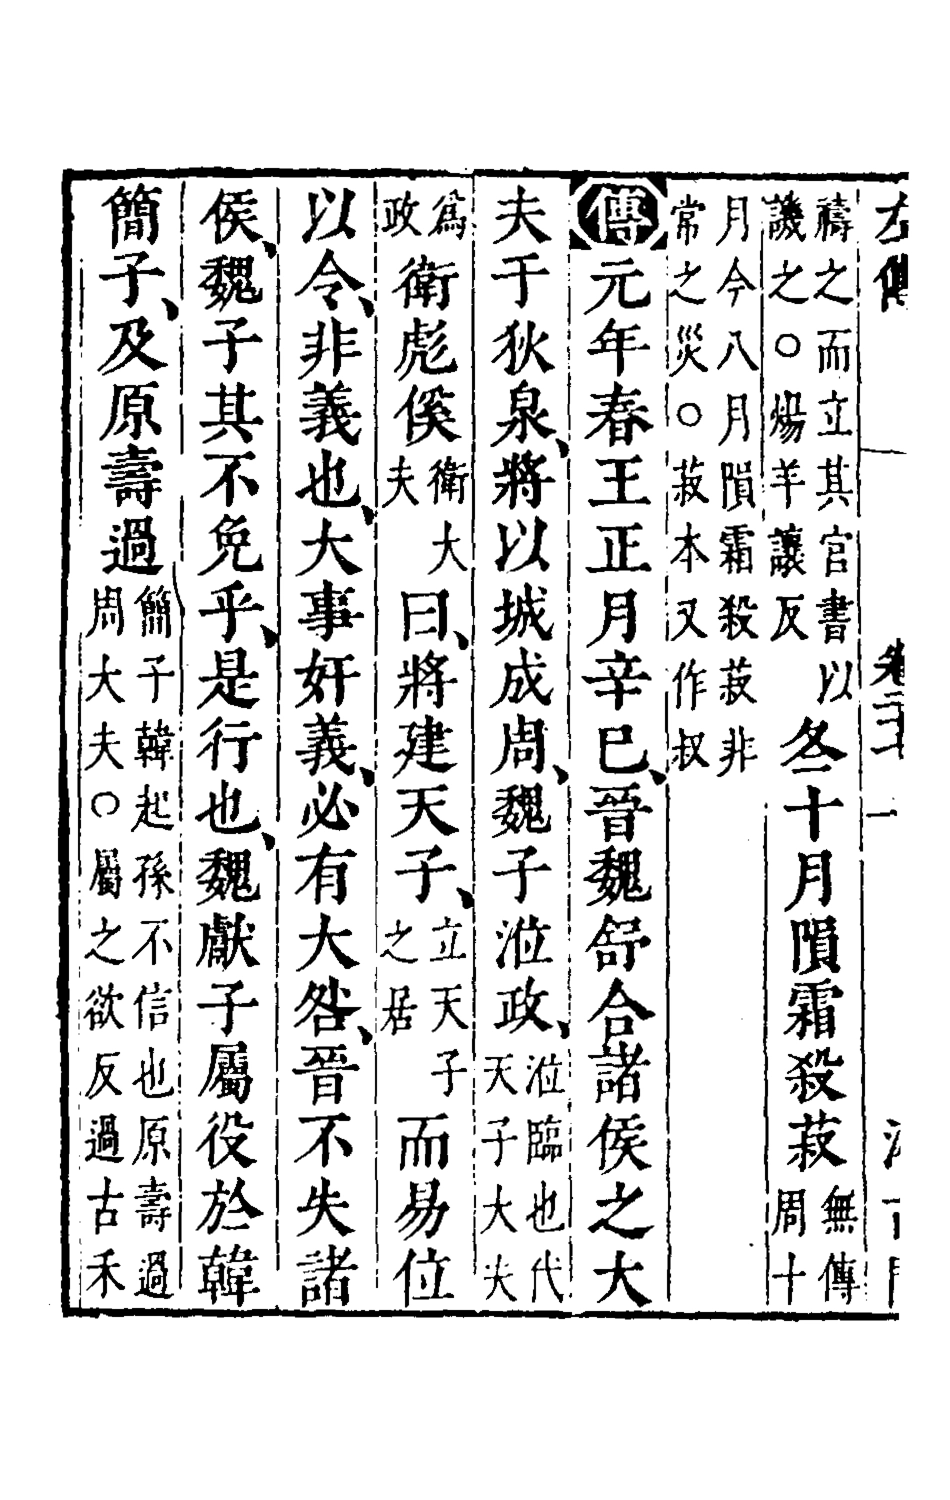 左傳
禱之而立其官書以譏之○煬羊讓反冬十月隕霜殺菽無傳周十
月今八月隕霜殺菽非常之災○菽本又作叔
傳元年春王正月辛巳、晉魏舒合諸侯之大
夫于狄泉、將以城成周、魏子涖政、涖臨也代天子大夫
爲政衛彪傒衛大夫曰、將建天子、立天子之居而易位
以令、非義也、大事奸義、必有大咎、晉不失諸
侯、魏子其不免乎、是行也、魏獻子屬役於韓
簡子、及原壽過簡子韓起孫不信也原壽過周大夫○屬之欲反過古禾